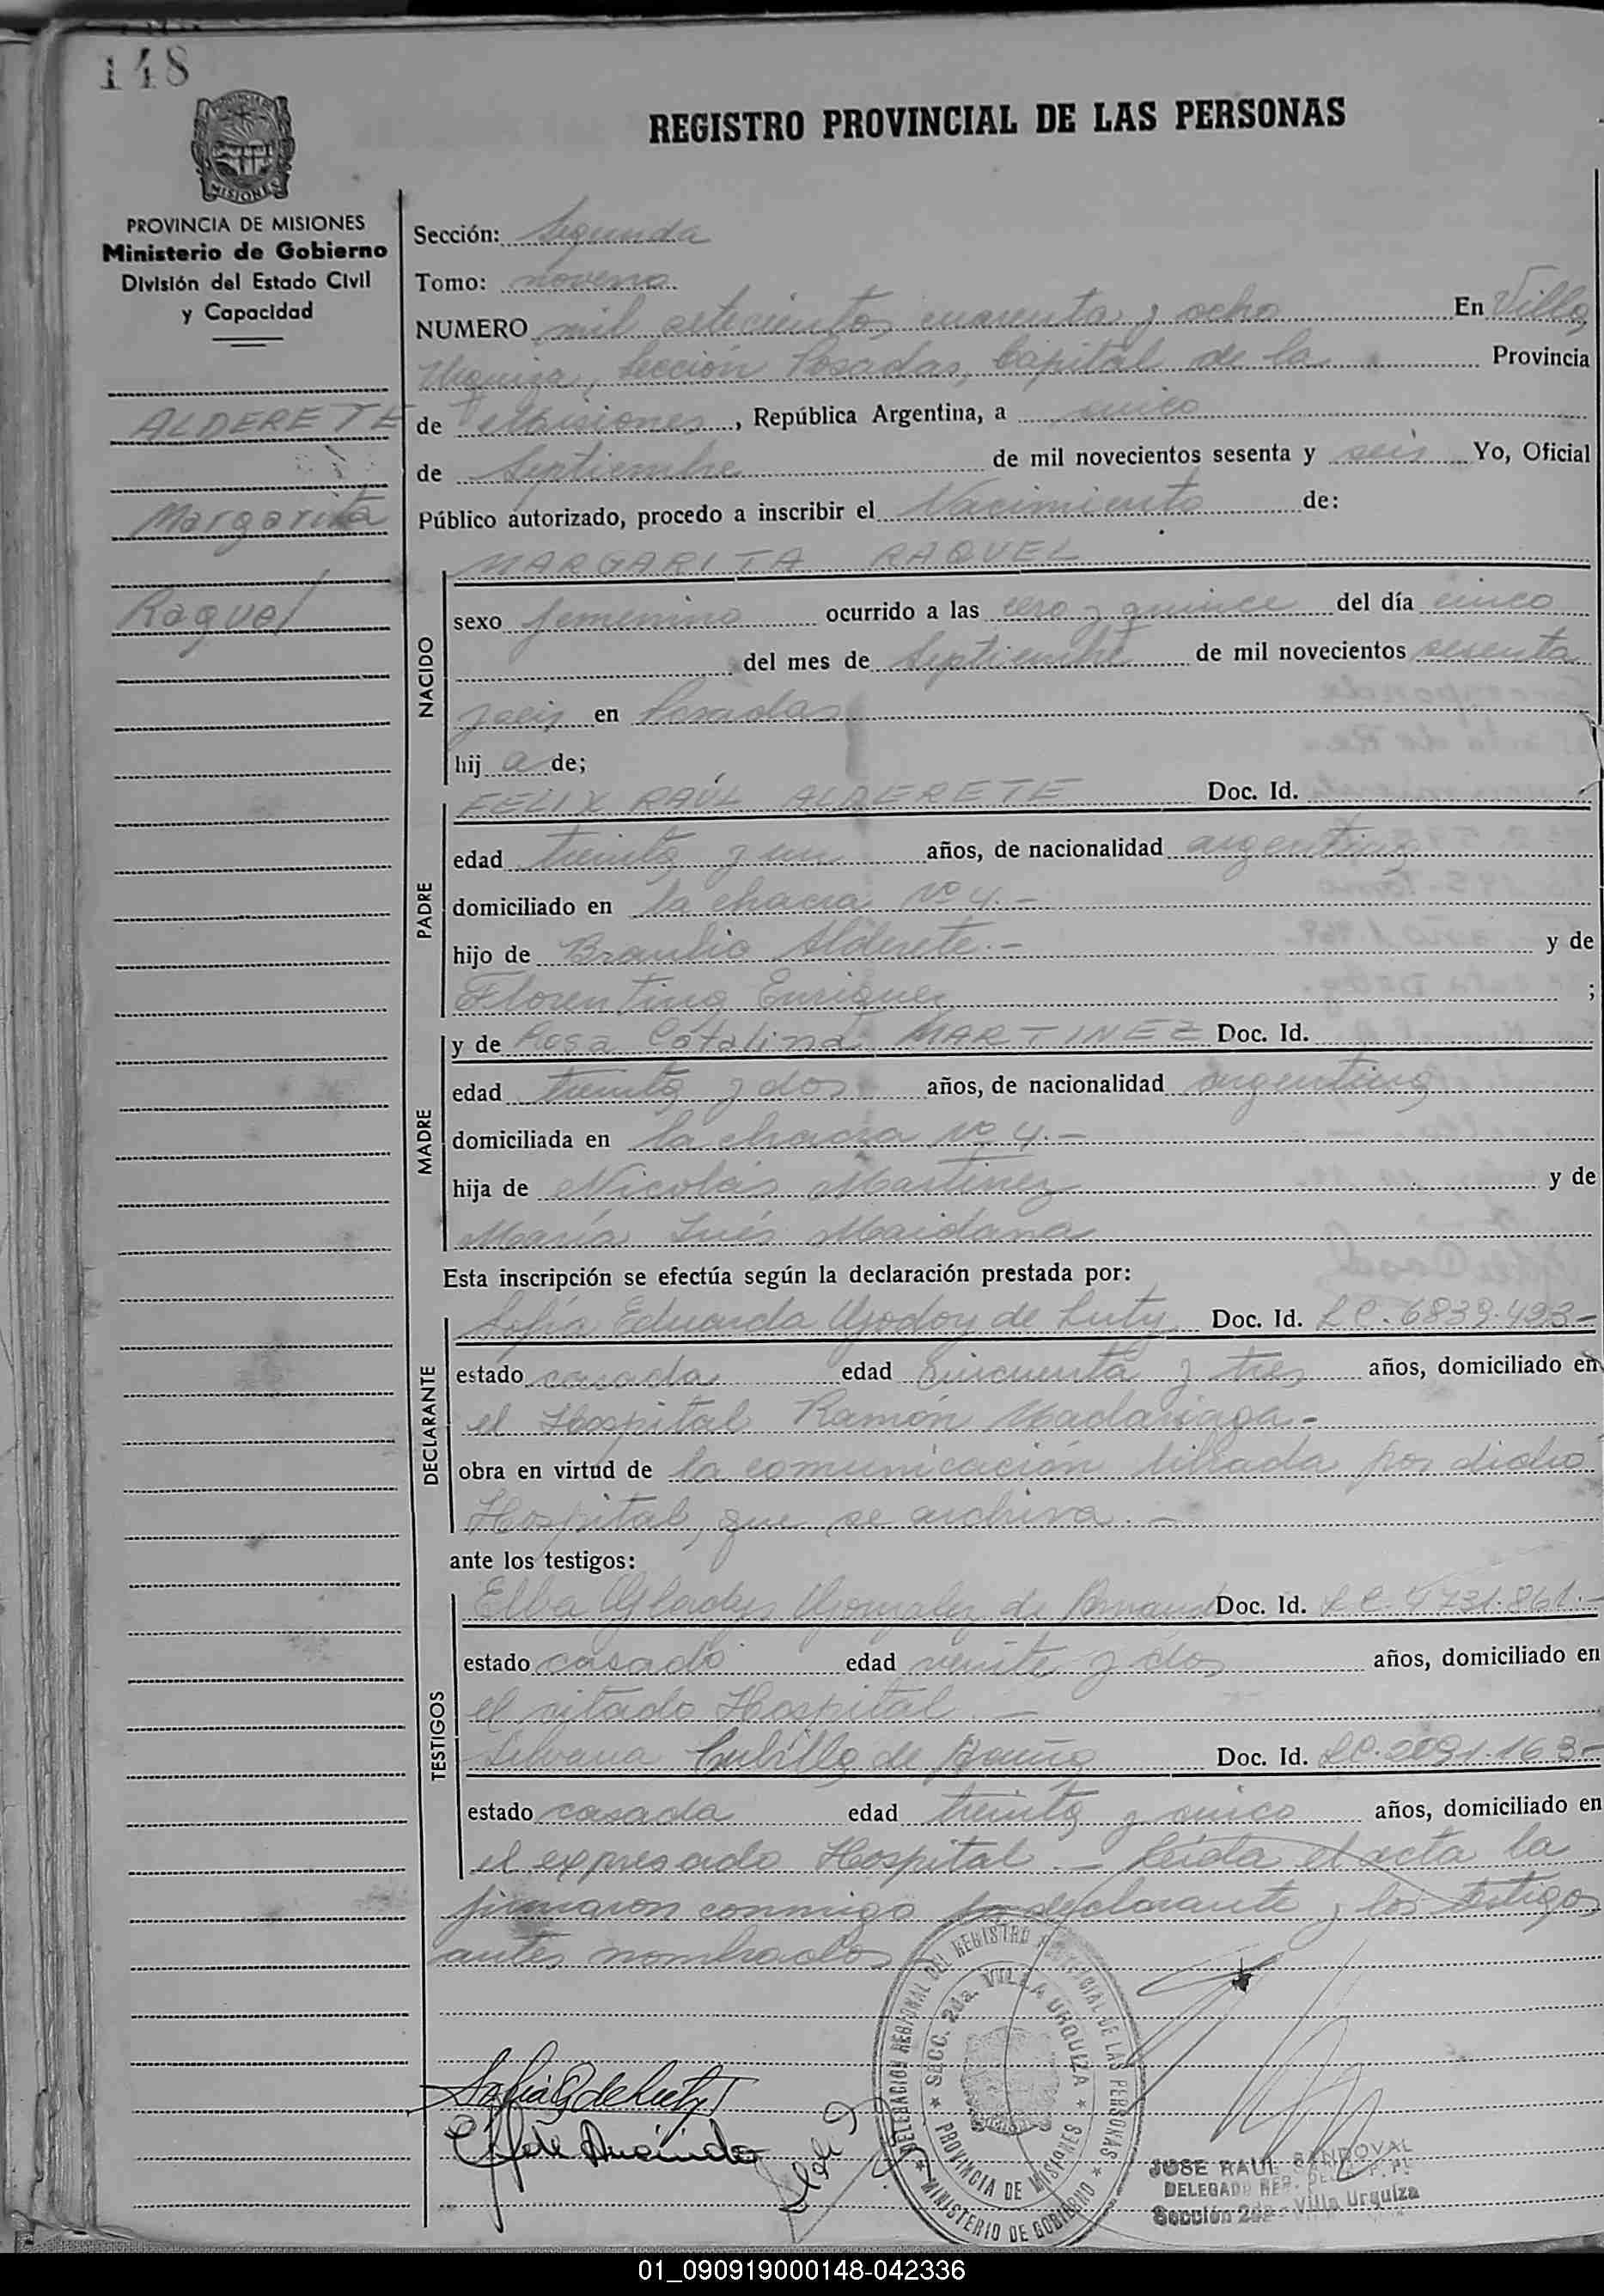 148
MISIONES
PROVINCIA DE MISIONES
Ministerio de Gobierno
División del Estado Civil
y Capacidad
ALDERETE
Margarita
Raquel
REGISTRO PROVINCIAL DE LAS PERSONAS
Sección: Segunda
Tomo: noveno
NUMERO mil setecientos cuarenta y ocho En Villa
Urquiza, Sección Posadas, Capital de la Provincia
de Misiones, República Argentina, a cinco
de Septiembre de mil novecientos sesenta y seis Yo, Oficial
Público autorizado, procedo a inscribir el Nacimiento de:
NACIDO
MARGARITA RAQUEL
sexo femenino ocurrido a las cero y quince del día cinco
del mes de Septiembre de mil novecientos sesenta
y seis en Posadas
hij a de;
PADRE
FELIX RAÚL ALDERETE Doc. Id.
edad treinta y un años, de nacionalidad argentina
domiciliado en la chacra Nº 4.-
hijo de Braulio Alderete.- y de
Florentina Enriquez ;
MADRE
y de Rosa Catalina MARTINEZ Doc. Id.
edad treinta y dos años, de nacionalidad argentina
domiciliada en la chacra Nº 4.-
hija de Nicolás Martinez y de
María Inés Maidana
Esta inscripción se efectúa según la declaración prestada por:
DECLARANTE
Sofía Eduarda Godoy de Luty Doc. Id. L.C. 6839.493-
estado casada edad cincuenta y tres años, domiciliado en
el Hospital Ramón Madariaga-
obra en virtud de la comunicación librada por dicho
Hospital, que se archiva.-
ante los testigos:
TESTIGOS
Elba Gladys Gonzalez de Doc. Id. L.C. 4731.861.-
estado casado edad veinte y dos años, domiciliado en
el citado Hospital.-
Silvana Cubilla de Doc. Id. L.C. 2091.163-
estado casada edad treinta y cinco años, domiciliado en
el expresado Hospital.- Leída el acta la
firmaron conmigo la declarante y los testigos
antes nombrados
Sofia G de Luty
DELEGACION REGIONAL DEL REGISTRO PROVINCIAL DE LAS PERSONAS
SECC. 2da. VILLA URQUIZA
PROVINCIA DE MISIONES
MINISTERIO DE GOBIERNO
JOSE RAUL SANDOVAL
DELEGADO REG.
Sección 2da - Villa Urquiza
01_090919000148-042336